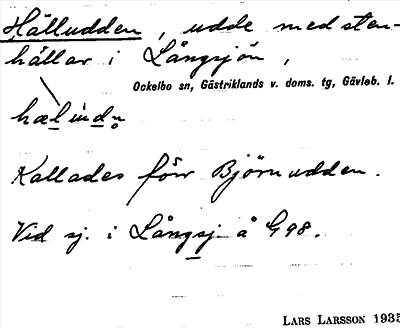 Hälludden, udde med sten-
hällar i Långsjön,
Ockelbo sn, Gästriklands v. doms. tg, Gävleb. l.
Kallades förr Björnudden.
Vid sj. i Långsj. å G98.
LARS LARSSON 1935